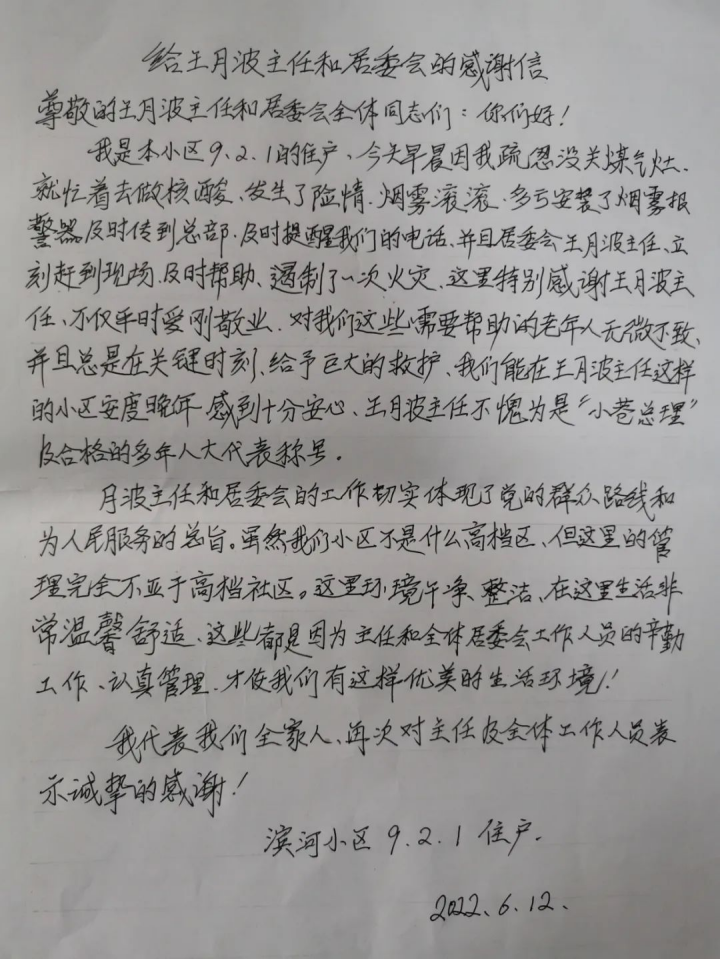 给王月波主任和居委会的感谢信
尊敬的王月波主任和居委会全体同志们：你们好！
我是本小区9.2.1的住户、今天早晨因我疏忽没关煤气灶.
就忙着去做核酸、发生了险情.烟雾滚滚.多亏安装了烟雾报
警器及时传到总部.及时提醒我们的电话、并且居委会王月波主任、立
刻赶到现场.及时帮助、遏制了一次火灾.这里特别感谢王月波主
任、不仅平时爱刚敬业.对我们这些需要帮助的老年人无微不致、
并且总是在关键时刻、给予巨大的救护、我们能在王月波主任这样
的小区安度晚年 感到十分安心、王月波主任不愧为是“小巷总理”
及合格的多年人大代表称号。
月波主任和居委会的工作切实体现了党的群众路线和
为人民服务的总旨。虽然我们小区不是什么高档区、但这里的管
理完全不亚于高档社区。这里环境干净、整洁、在这里生活非
常温馨舒适、这些都是因为主任和全体居委会工作人员的辛勤
工作、认真管理.才使我们有这样优美的生活环境！
我代表我们全家人、再次对主任及全体工作人员表
示诚挚的感谢！
滨河小区9.2.1住户.
2022.6.12.